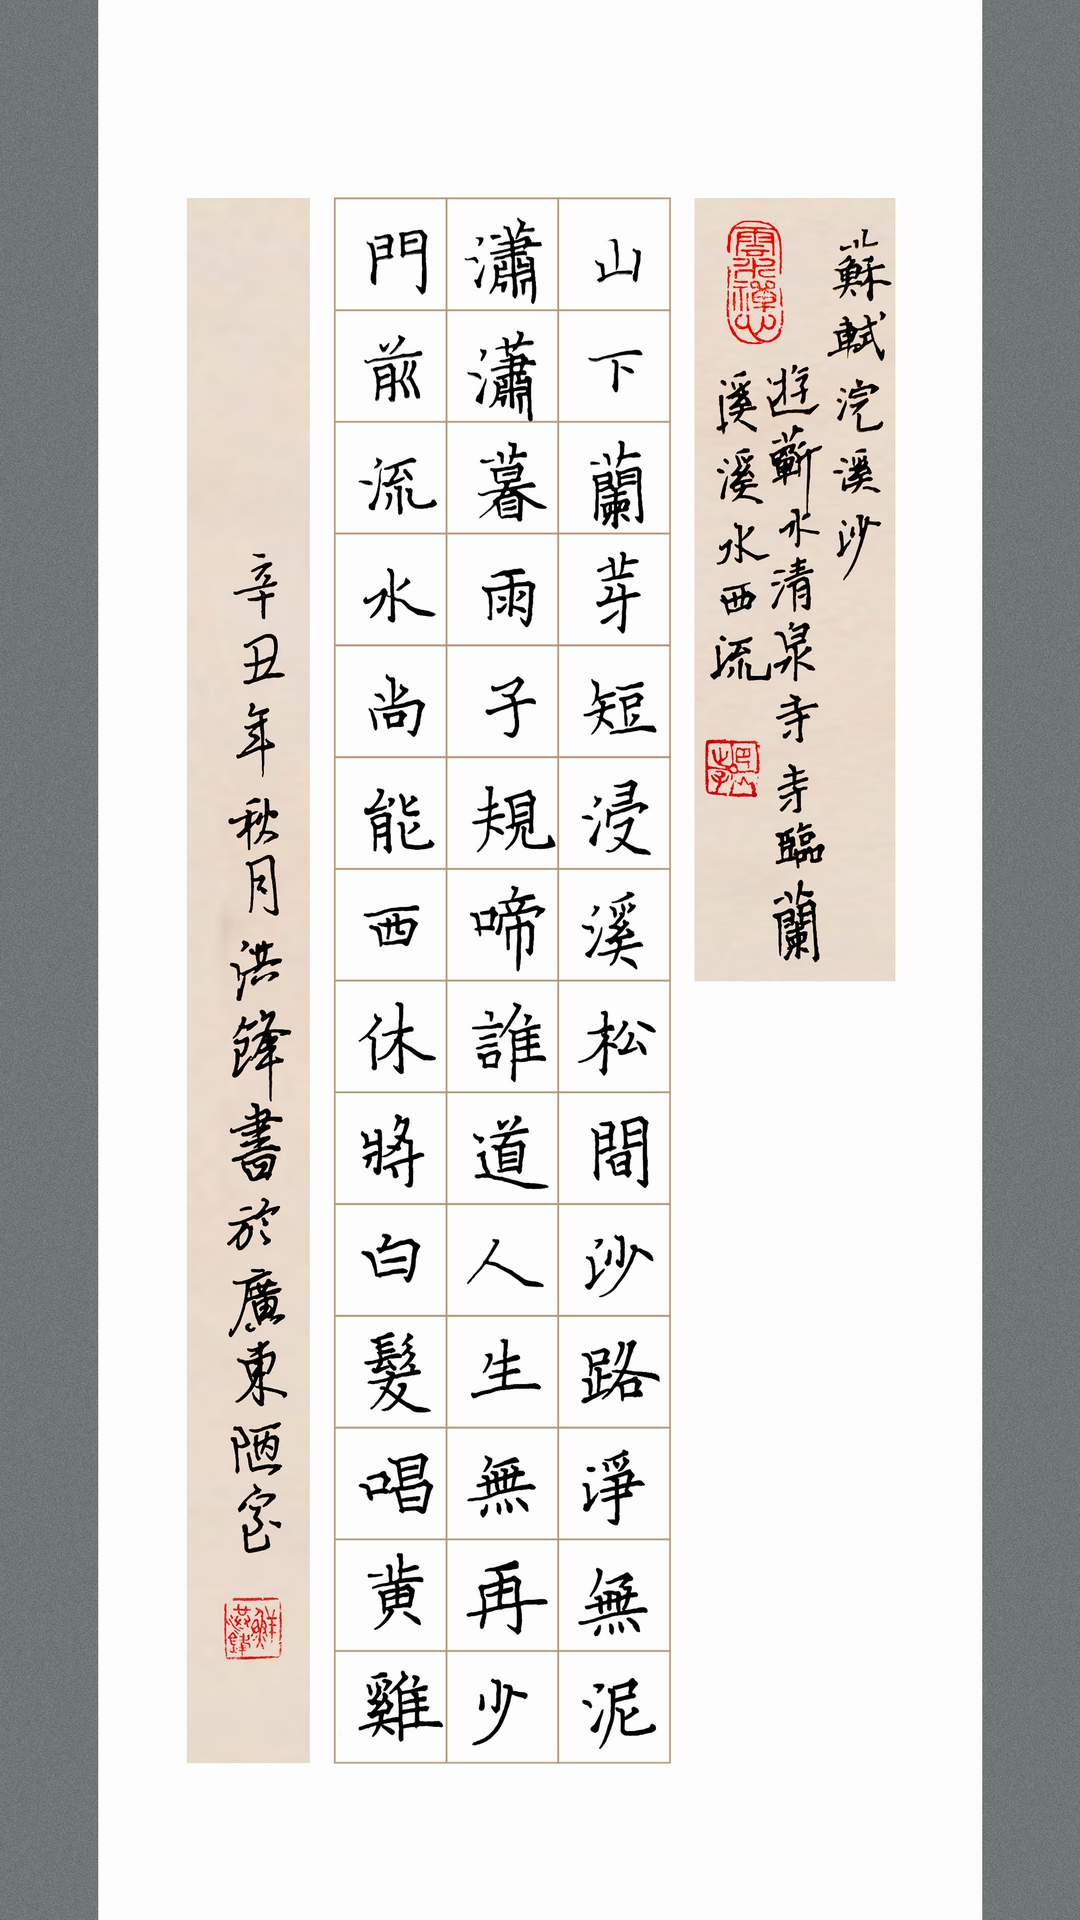 蘇軾浣溪沙
遊蘄水清泉寺寺臨蘭
溪溪水西流
山下蘭芽短浸溪松間沙路淨無泥
瀟瀟暮雨子規啼誰道人生無再少
門前流水尚能西休將白髮唱黃雞
辛丑年秋月洪鋒書於廣東陋室